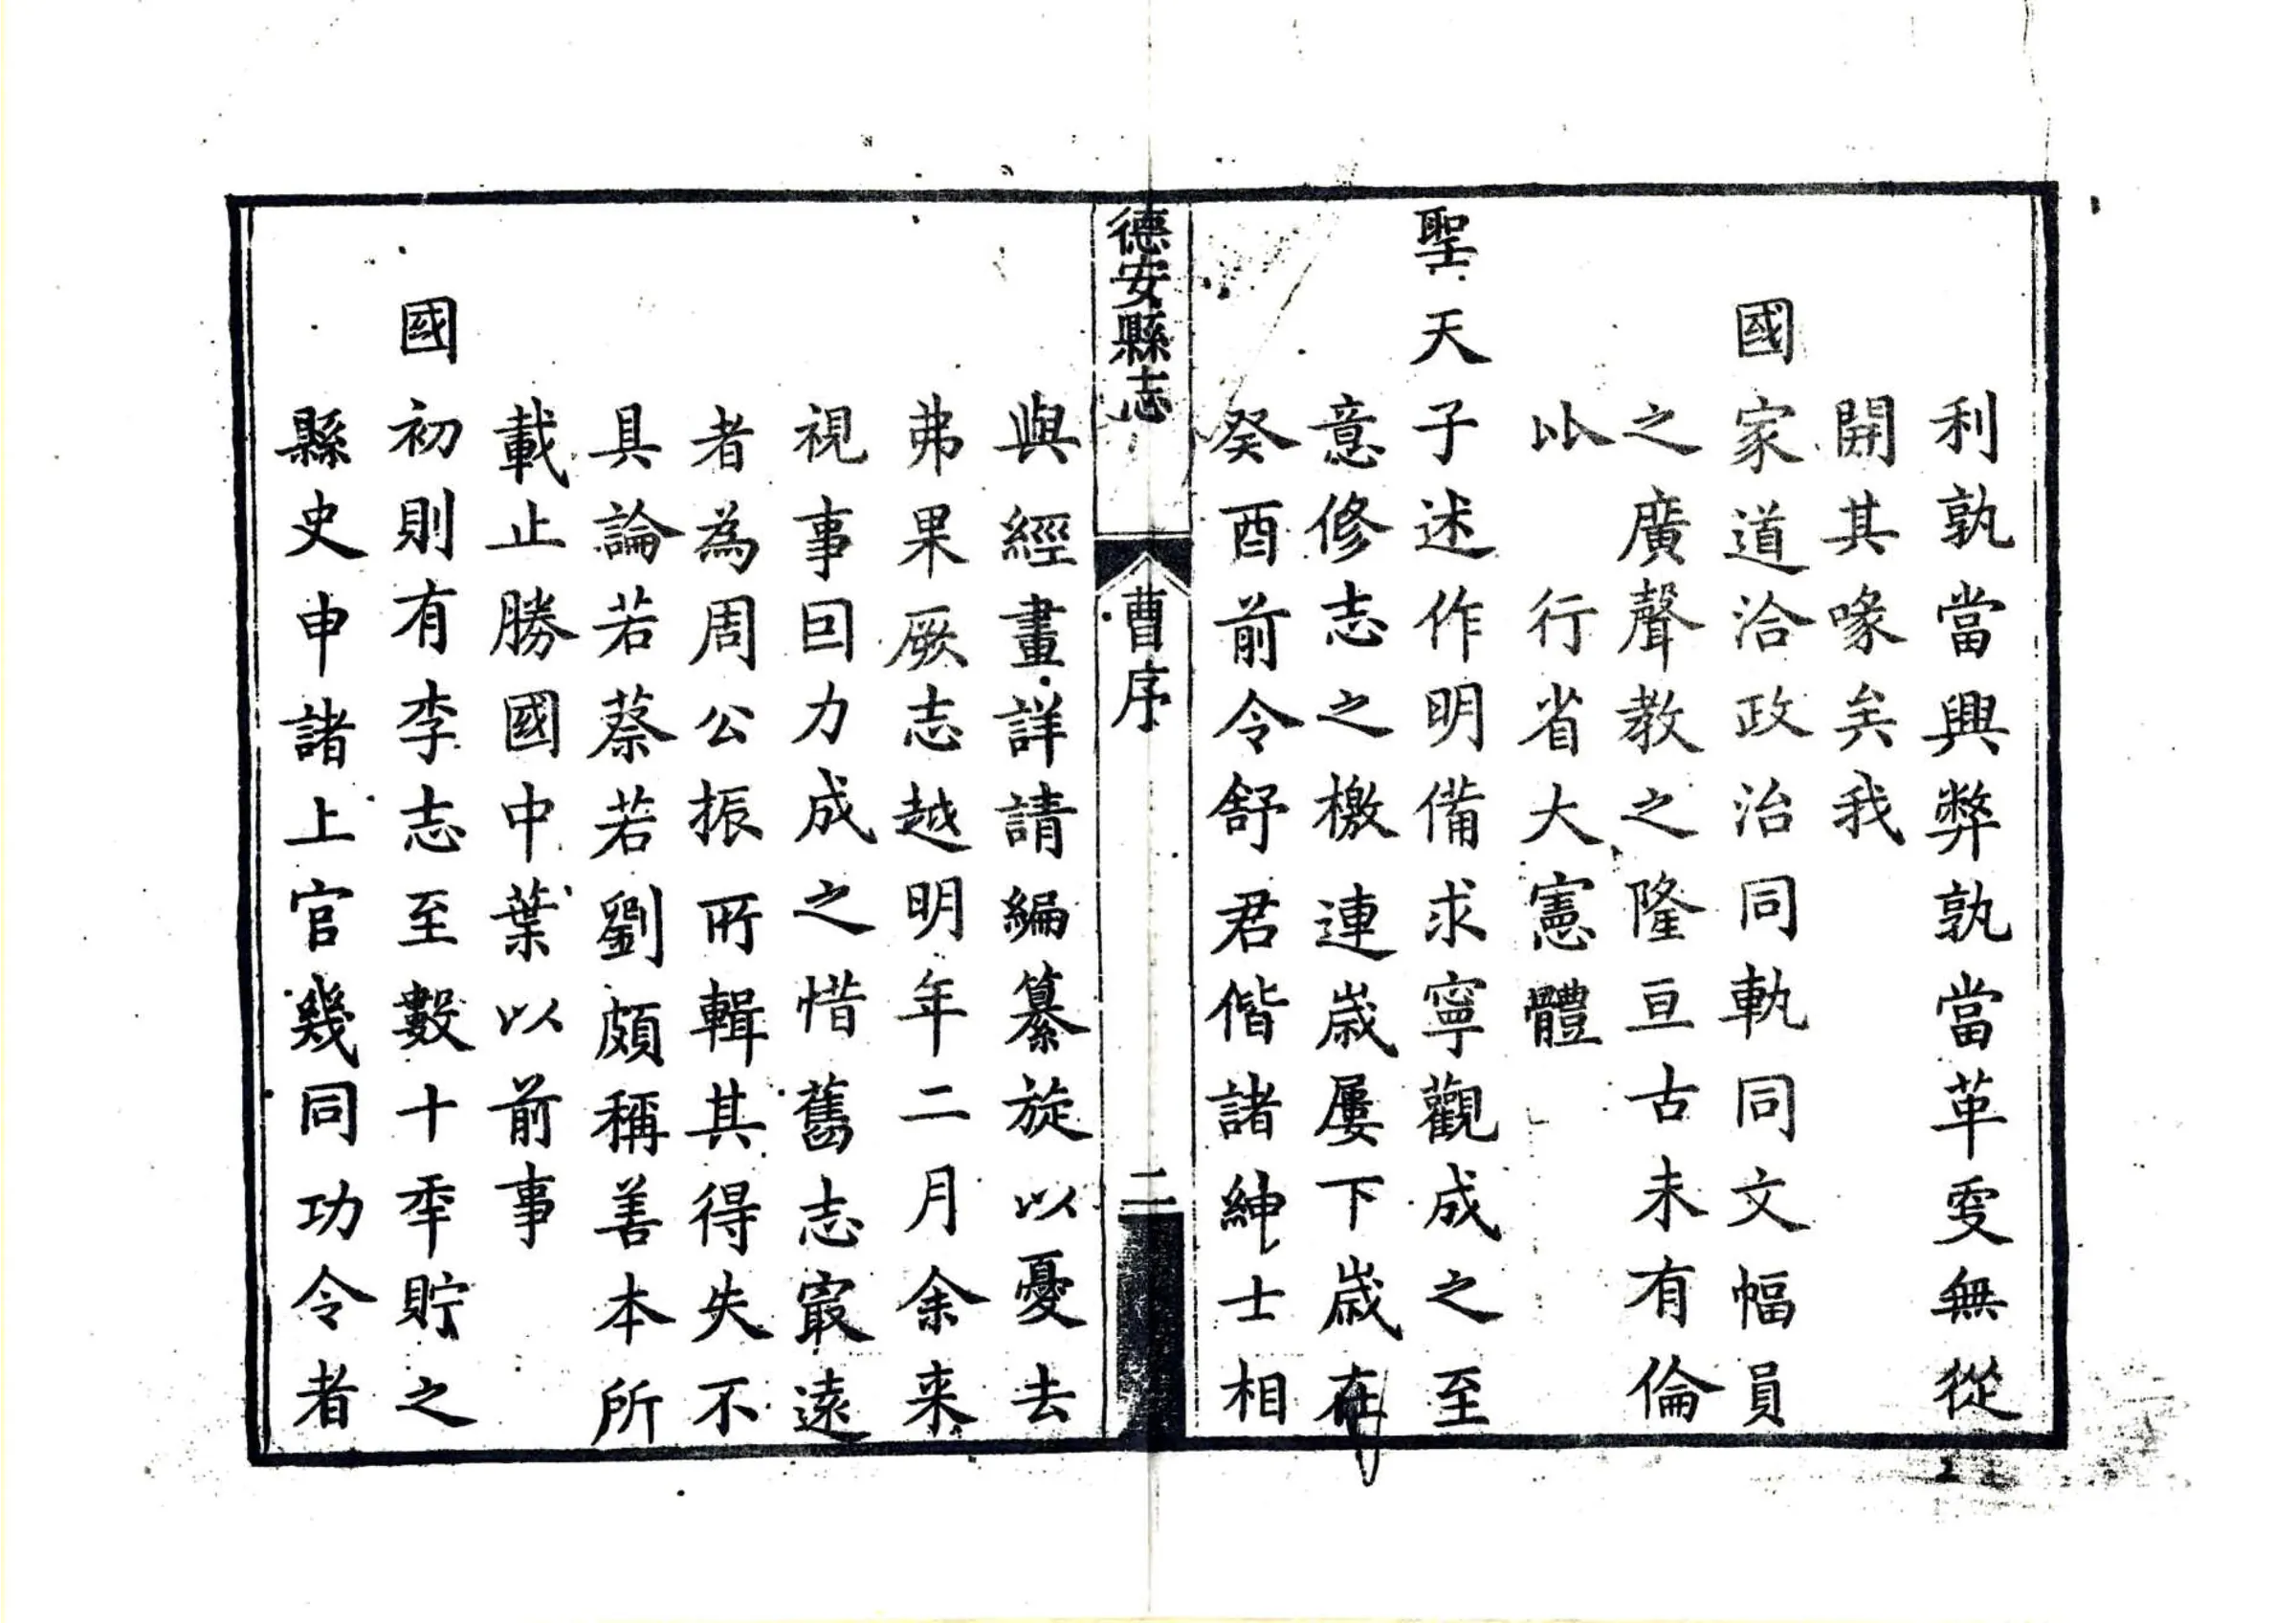 利孰當興弊孰當革叓無從
開其喙矣我
國家道洽政治同軌同文幅員
之廣聲教之隆亘古未有倫
以行省大憲體
聖天子述作明備求寧觀成之至
意修志之檄連歲屢下歲在
癸酉前令舒君偕諸紳士相
德安縣志
曹序
二
與經畫詳請編纂旋以憂去
弗果厥志越明年二月余来
視事回力成之惜舊志㝡遠
者為周公振所輯其得失不
具論若蔡若劉頗稱善本所
載止勝國中葉以前事
國初則有李志至數十秊貯之
縣史申諸上官幾同功令者